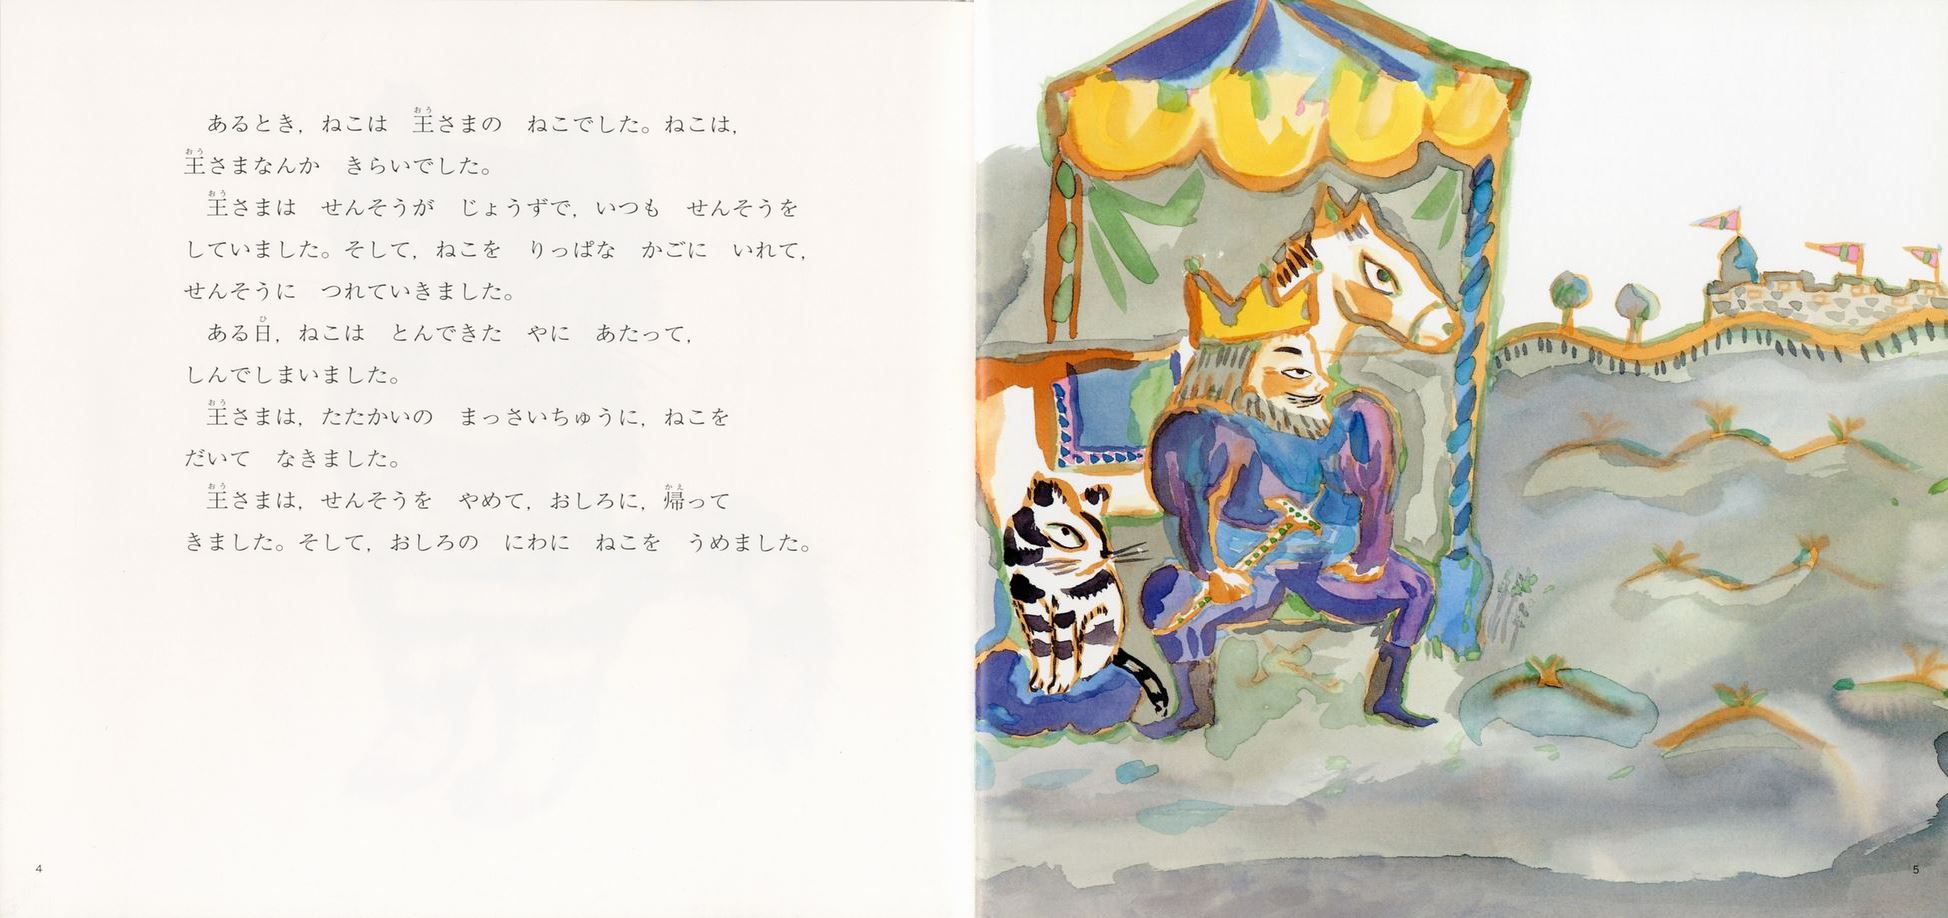 あるとき，ねこは　王さまの　ねこでした。ねこは，
王さまなんか　きらいでした。
王さまは　せんそうが　じょうずで，いつも　せんそうを
していました。そして，ねこを　りっぱな　かごに　いれて，
せんそうに　つれていきました。
ある日，ねこは　とんできた　やに　あたって，
しんでしまいました。
王さまは，たたかいの　まっさいちゅうに，ねこを
だいて　なきました。
王さまは，せんそうを　やめて，おしろに，帰って
きました。そして，おしろの　にわに　ねこを　うめました。
4
5